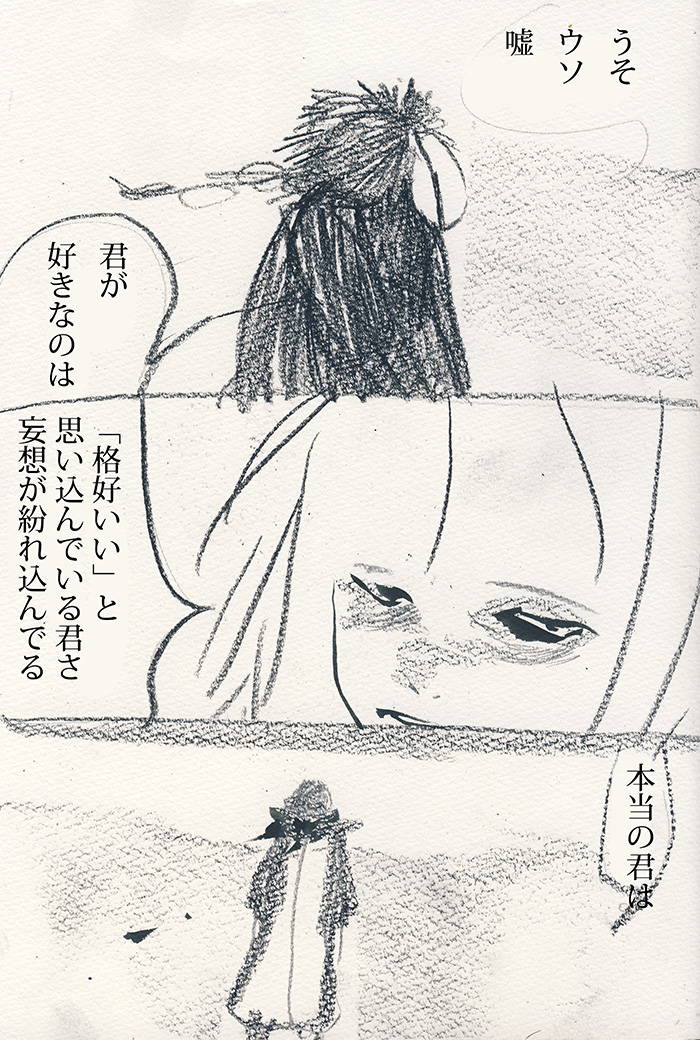 うそ
ウソ
嘘
君が
好きなのは
「格好いい」と
思い込んでいる君さ
妄想が紛れ込んでる
本当の君は